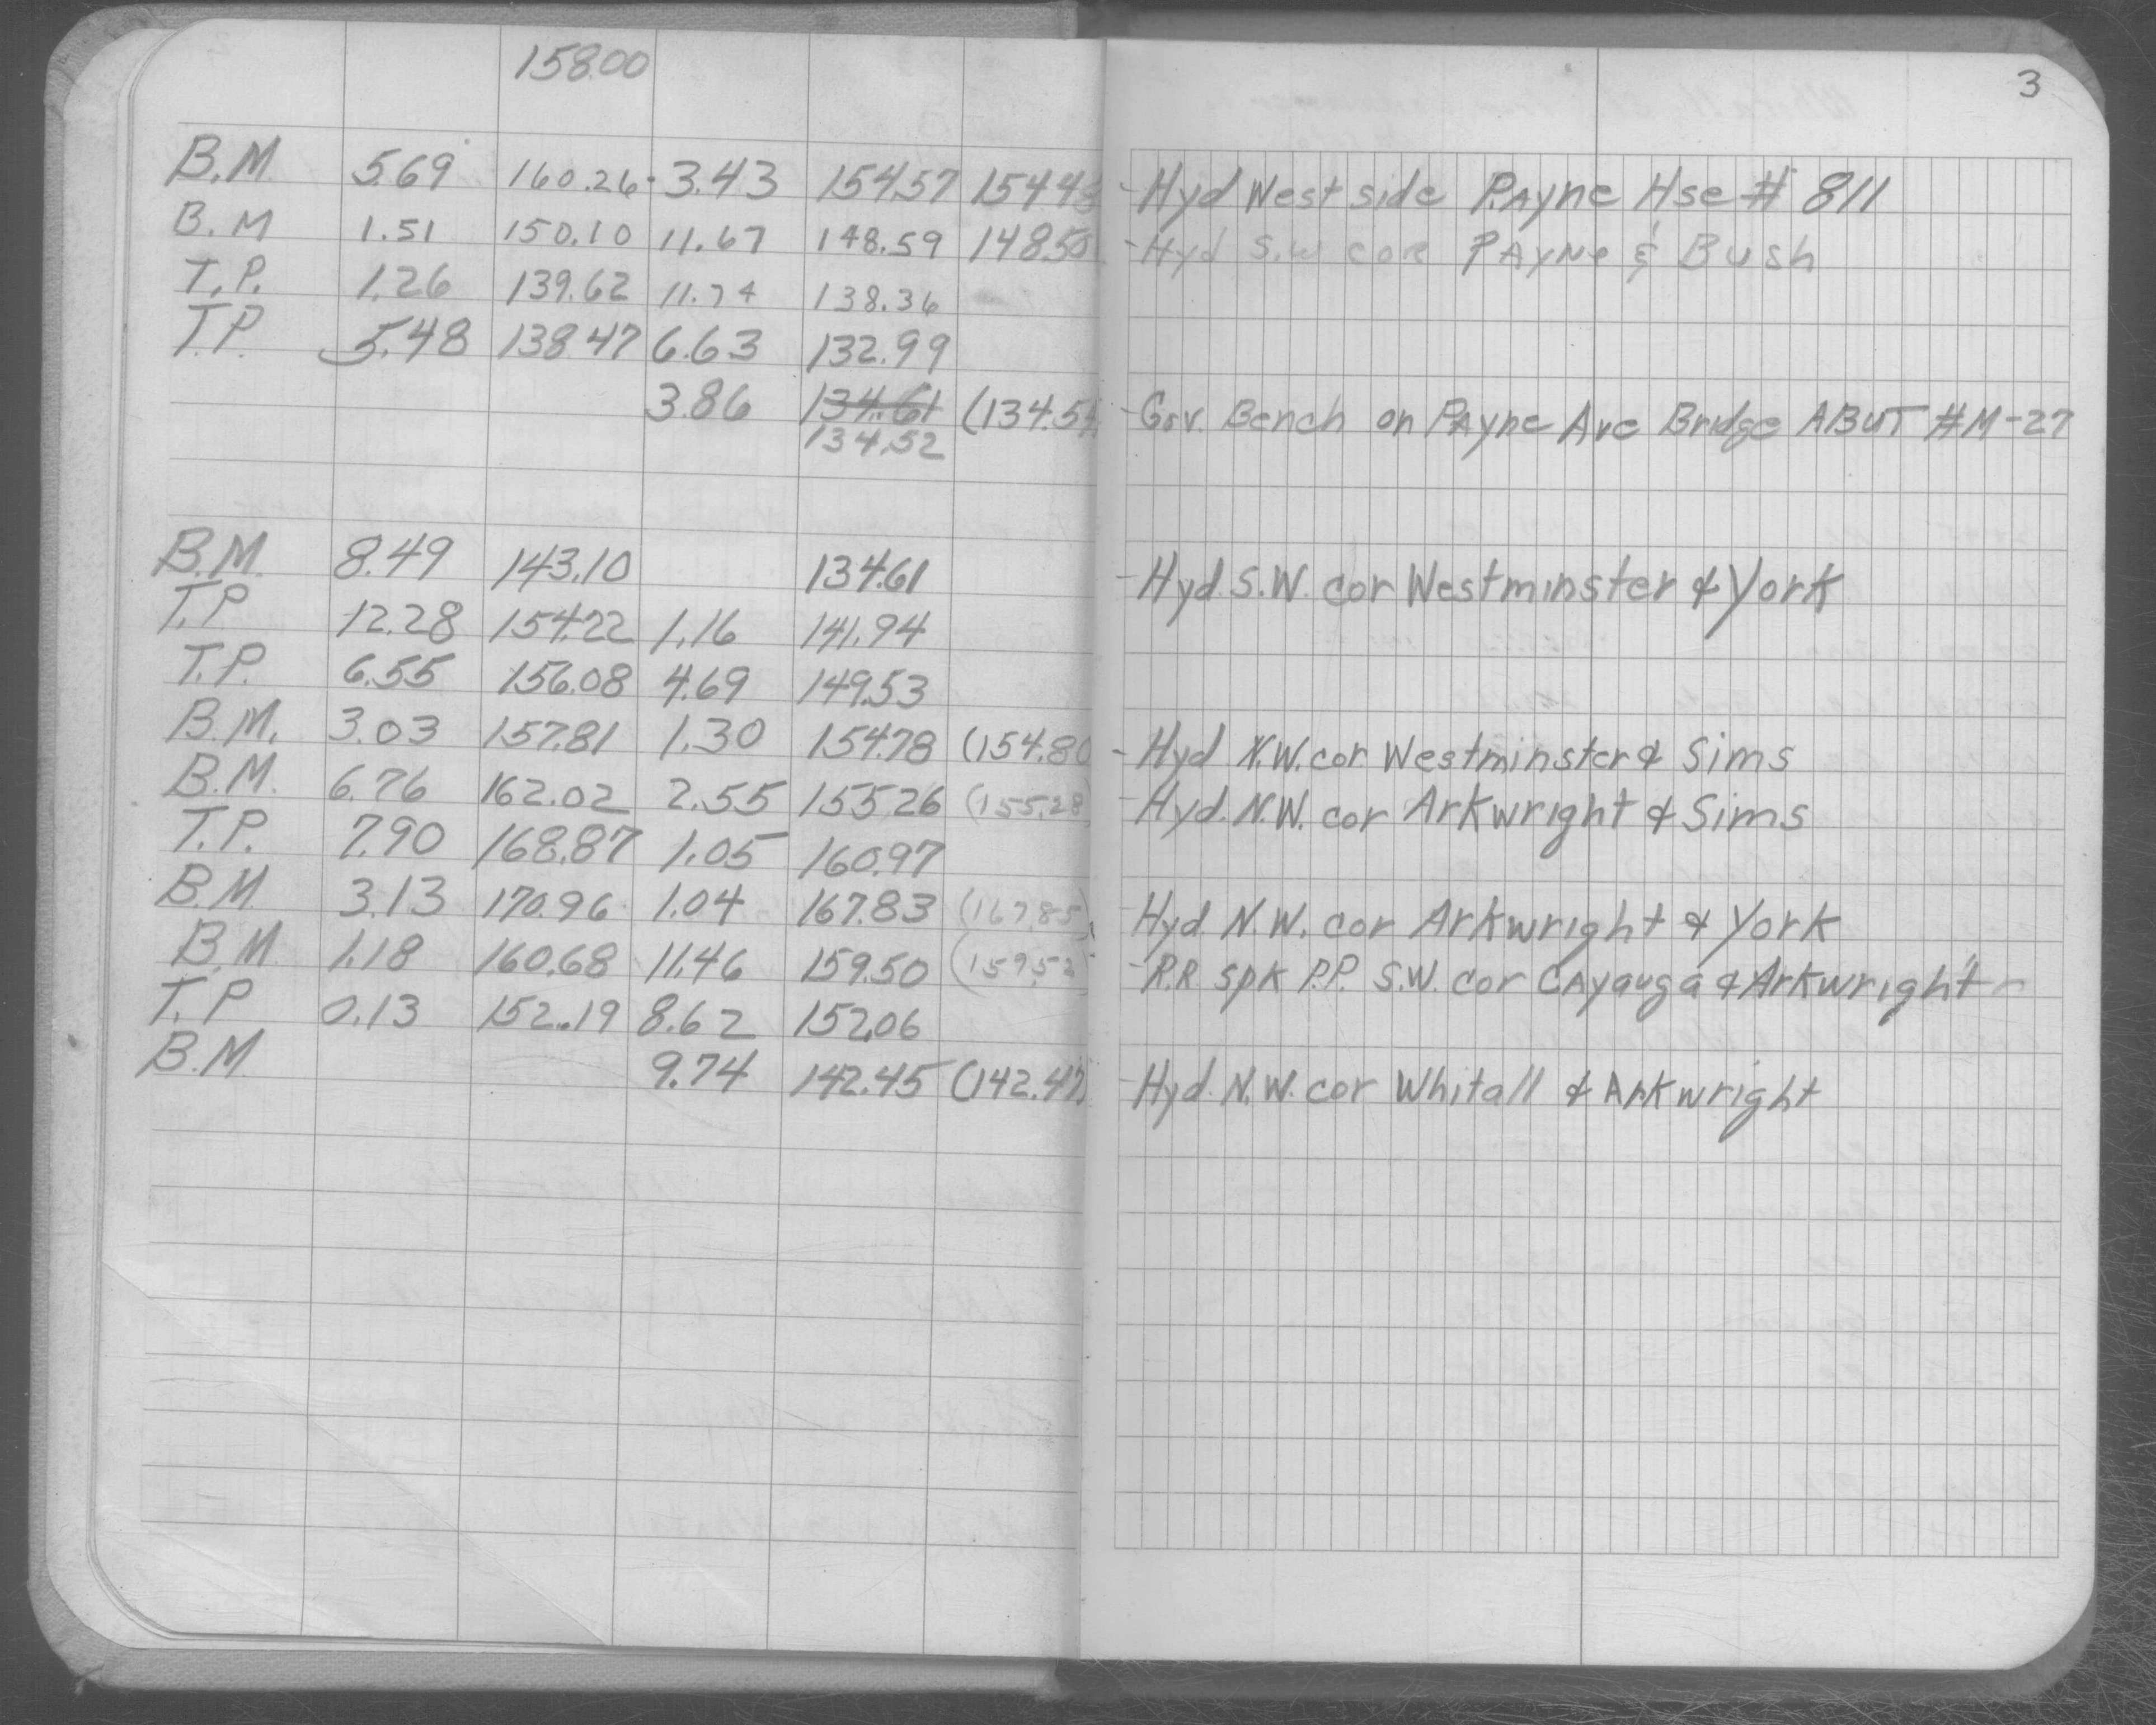 158.00
3
B.M. 5.69 160.26 3.43 154.57 154.48 - Hyd West side Payne Hse # 811
B.M 1.51 150.10 11.67 148.59 148.50 - Hyd S.W cor Payne & Bush
T.P. 1.26 139.62 11.74 138.36
T.P. 5.48 138.47 6.63 132.99
3.86 134.61 (134.54 - Gov. Bench on Payne Ave Bridge ABUT #M-27
134.52
B.M. 8.49 143.10 134.61 - Hyd. S.W. cor Westminster & York
T.P 12.28 154.22 1.16 141.94
T.P. 6.55 156.08 4.69 149.53
B.M. 3.03 157.81 1.30 154.78 (154.80 - Hyd N.W. cor. Westminster & Sims
B.M. 6.76 162.02 2.55 155.26 (155.28) - Hyd. N.W. cor Arkwright & Sims
T.P. 7.90 168.87 1.05 160.97
B.M 3.13 170.96 1.04 167.83 (167.85) Hyd. N.W. cor Arkwright & York
B.M. 1.18 160.68 11.46 159.50 (159.52 - R.R. spk P.P. S.W. cor Cayauga & Arkwright
T.P 0.13 152.19 8.62 152.06
B.M 9.74 142.45 (142.47) - Hyd. N.W. cor Whitall & Arkwright